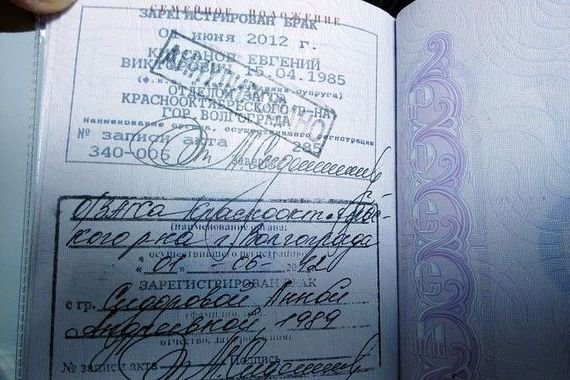 СЕМЕЙНОЕ ПОЛОЖЕНИЕ
ЗАРЕГИСТРИРОВАН БРАК
01 июня 2012 г.
ЕВГЕНИЙ
ВИКТОРОВИЧ 15.04.1985
ОТДЕЛОМ ЗАГСА
КРАСНООКТЯБРЬСКОГО Р-НА
ГОР. ВОЛГОГРАДА
наименование органа, осуществившего регистрацию
№ записи акта 285
340-006 Заверил
ОЗАГСа Краснооктябрьс-
кого р-на г. Волгограда
(наименование органа,
осуществившего регистрацию)
"01" - 06 - 2012
ЗАРЕГИСТРИРОВАН БРАК
с гр. Сидоровой Анной
Андреевной, 1989
отчество, дата рождения)
№ записи акта Подпись